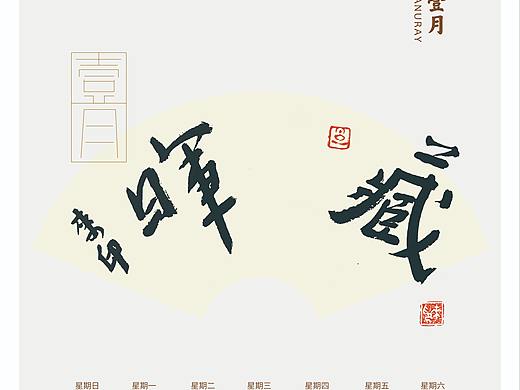 壹月
ANURAY
壹月
藏
暉
星期日 星期一 星期二 星期三 星期四 星期五 星期六